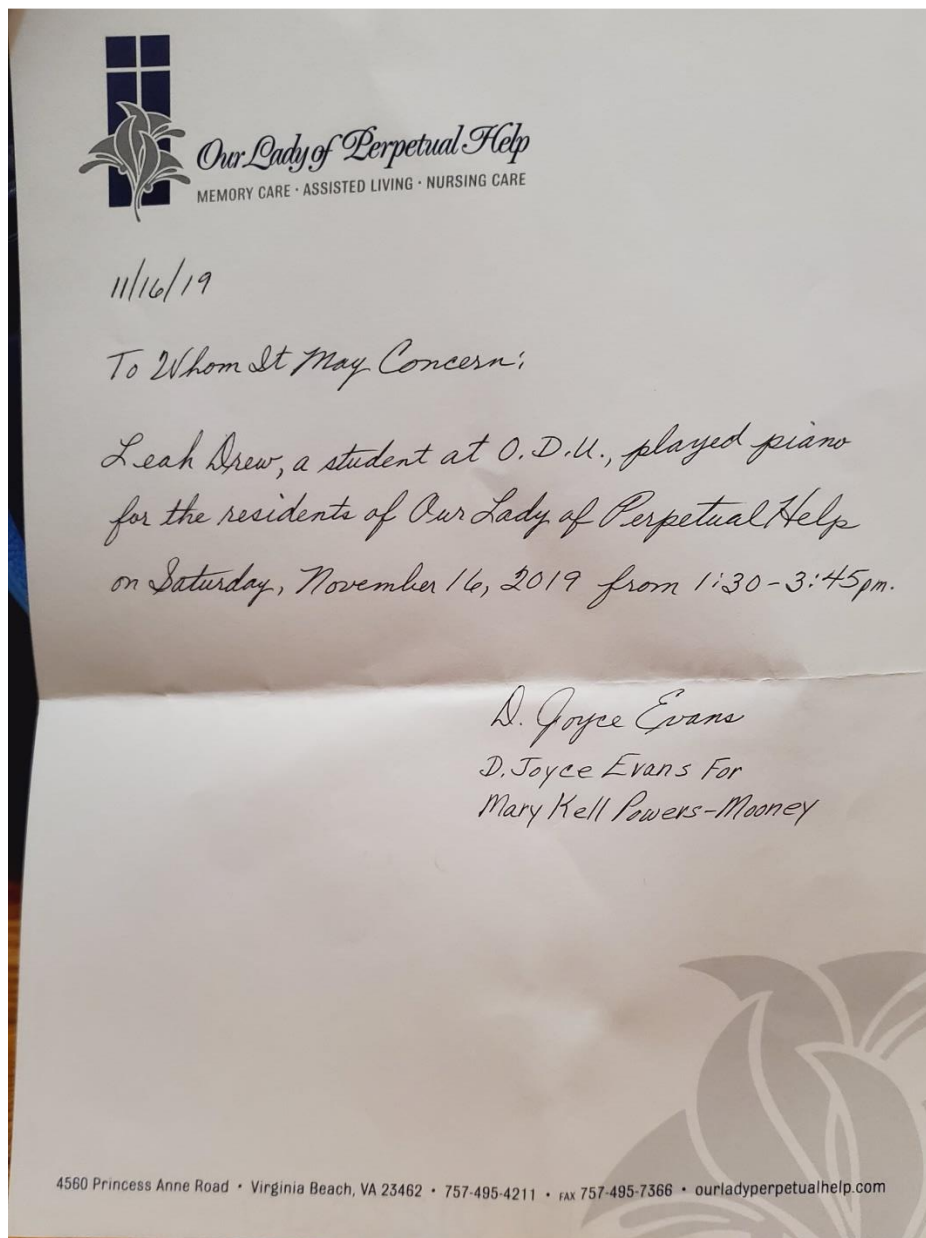 Our Lady of Perpetual Help
MEMORY CARE · ASSISTED LIVING · NURSING CARE
11/16/19
To Whom It May Concern:
Leah Drew, a student at O.D.U., played piano
for the residents of Our Lady of Perpetual Help
on Saturday, November 16, 2019 from 1:30-3:45pm.
D. Joyce Evans
D. Joyce Evans For
Mary Kell Powers-Mooney
4560 Princess Anne Road • Virginia Beach, VA 23462 • 757-495-4211 • FAX 757-495-7366 • ourladyperpetualhelp.com